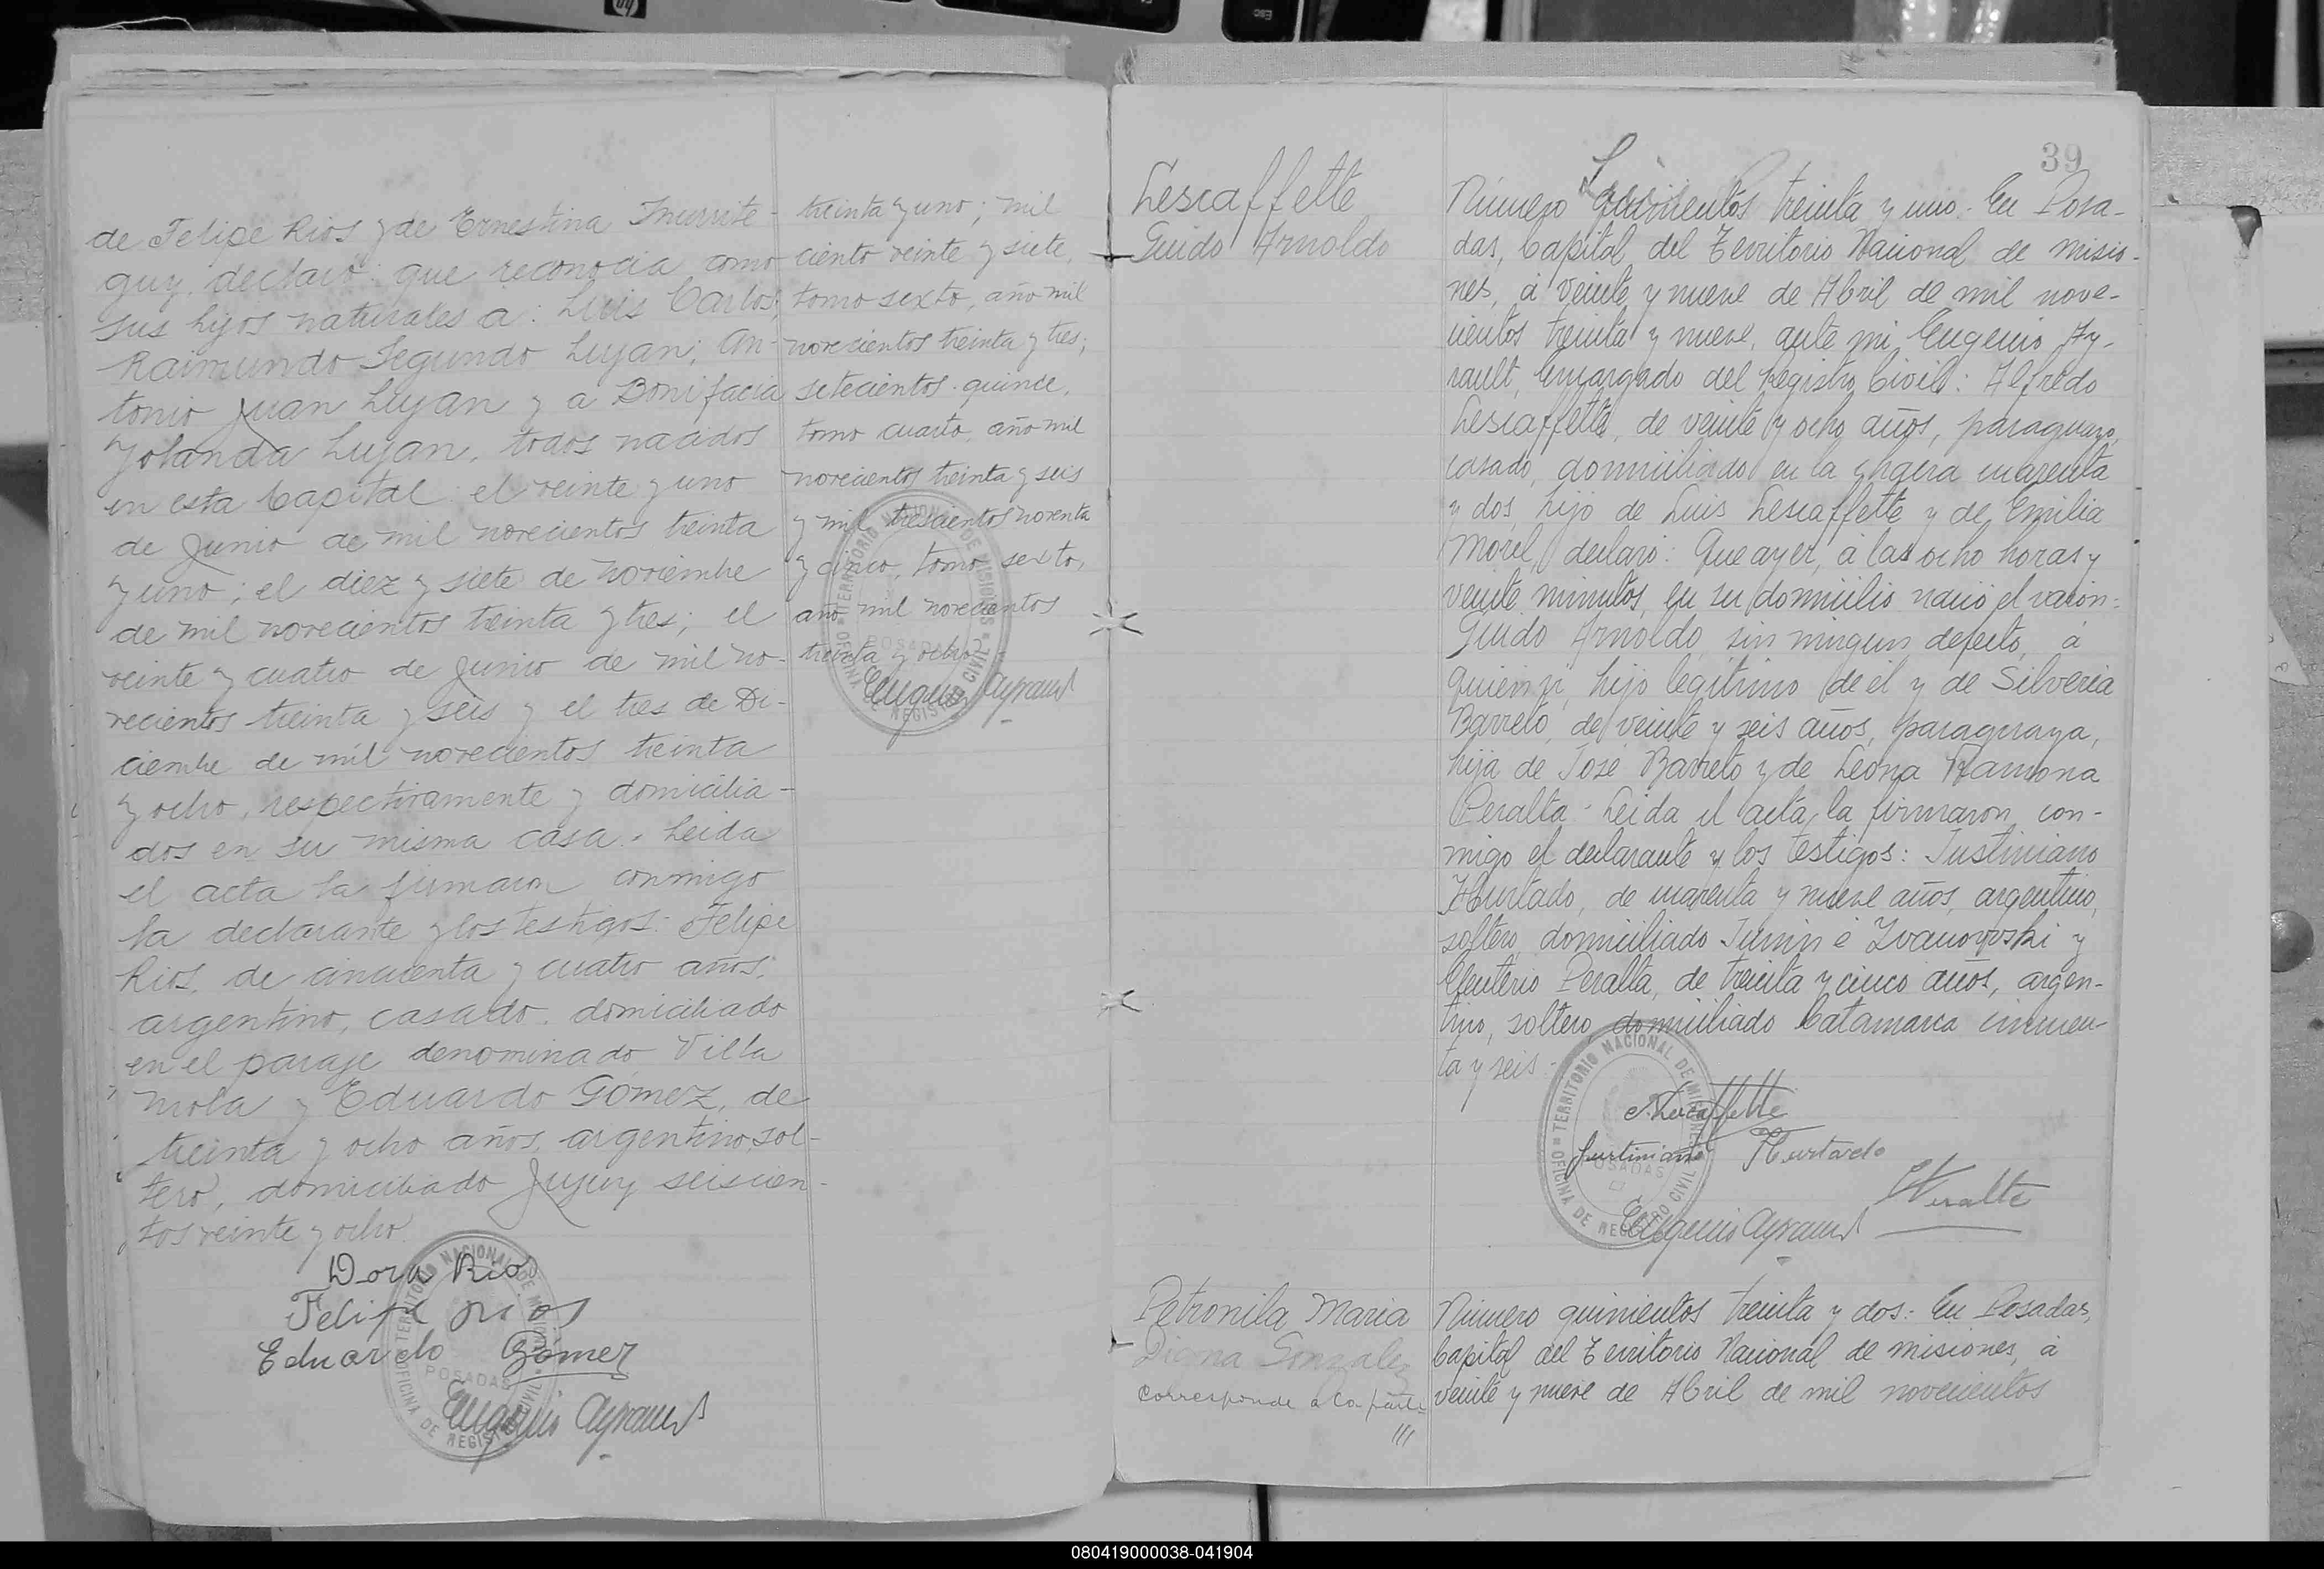 de Felipe Rios y de Ernestina Inurrite-
guy, declaró: que reconocia como
sus hijos naturales a: Luis Carlos,
Raimundo Segundo Lujan; An-
tonio Juan Lujan y a Bonifacia
Yolanda Lujan, todos nacidos
en esta Capital: el veinte y uno
de Junio de mil novecientos treinta
y uno; el diez y siete de noviembre
de mil novecientos treinta y tres; el
veinte y cuatro de Junio de mil no-
vecientos treinta y seis y el tres de Di-
ciembre de mil novecientos treinta
y ocho, respectivamente y domicilia-
dos en su misma casa. Leida
el acta la firmaron conmigo
la declarante y los testigos: Felipe
Rios, de cincuenta y cuatro años,
argentino, casado, domiciliado
en el paraje denominado Villa
Mola y Eduardo Gómez, de
treinta y ocho años, argentino, sol-
tero, domiciliado Jujuy seiscien-
tos veinte y ocho
Dora Rios
Felipe Rios
Eduardo Gómez
Eugenio Ayrault
OFICINA DE REGISTRO CIVIL
TERRITORIO NACIONAL DE MISIONES
POSADAS
treinta y uno; mil
ciento veinte y siete,
tomo sexto, año mil
novecientos treinta y tres;
setecientos quince,
tomo cuarto, año mil
novecientos treinta y seis
y mil trescientos noventa
y cinco, tomo sexto,
año mil novecientos
treinta y ocho
Eugenio Ayrault
OFICINA DE REGISTRO CIVIL
TERRITORIO NACIONAL DE MISIONES
POSADAS
39
Lescaffette
Guido Arnoldo
Número quinientos treinta y uno. En Posa-
das, Capital del Territorio Nacional de Misio-
nes, á veinte y nueve de Abril de mil nove-
cientos treinta y nueve, ante mi Eugenio Ay-
rault, Encargado del Registro Civil: Alfredo
Lescaffette, de veinte y ocho años, paraguayo,
casado, domiciliado en la chacra cuarenta
y dos, hijo de Luis Lescaffette y de Emilia
Morel, declaró: Que ayer, á las ocho horas y
veinte minutos, en su domicilio nació el varón:
Guido Arnoldo, sin ningun defecto, á
quien vi, hijo legitimo de él y de Silveria
Barreto, de veinte y seis años, paraguaya,
hija de José Barreto y de Leona Ramona
Peralta. Leida el acta, la firmaron con-
migo el declarante y los testigos: Justiniano
Hurtado, de cuarenta y nueve años, argentino,
soltero, domiciliado Junin é Ivanowski y
Eleuterio Peralta, de treinta y cinco años, argen-
tino, soltero, domiciliado Catamarca cincuen-
ta y seis.
A. Lescaffette
Justiniano Hurtado
E Peralta
Eugenio Ayrault
OFICINA DE REGISTRO CIVIL
TERRITORIO NACIONAL DE MISIONES
POSADAS
Petronila Maria
Digna Gonzalez
Corresponde a la parte
///
Número quinientos treinta y dos: En Posadas,
Capital del Territorio Nacional de Misiones, á
veinte y nueve de Abril de mil novecientos
hp
Esc
080419000038-041904